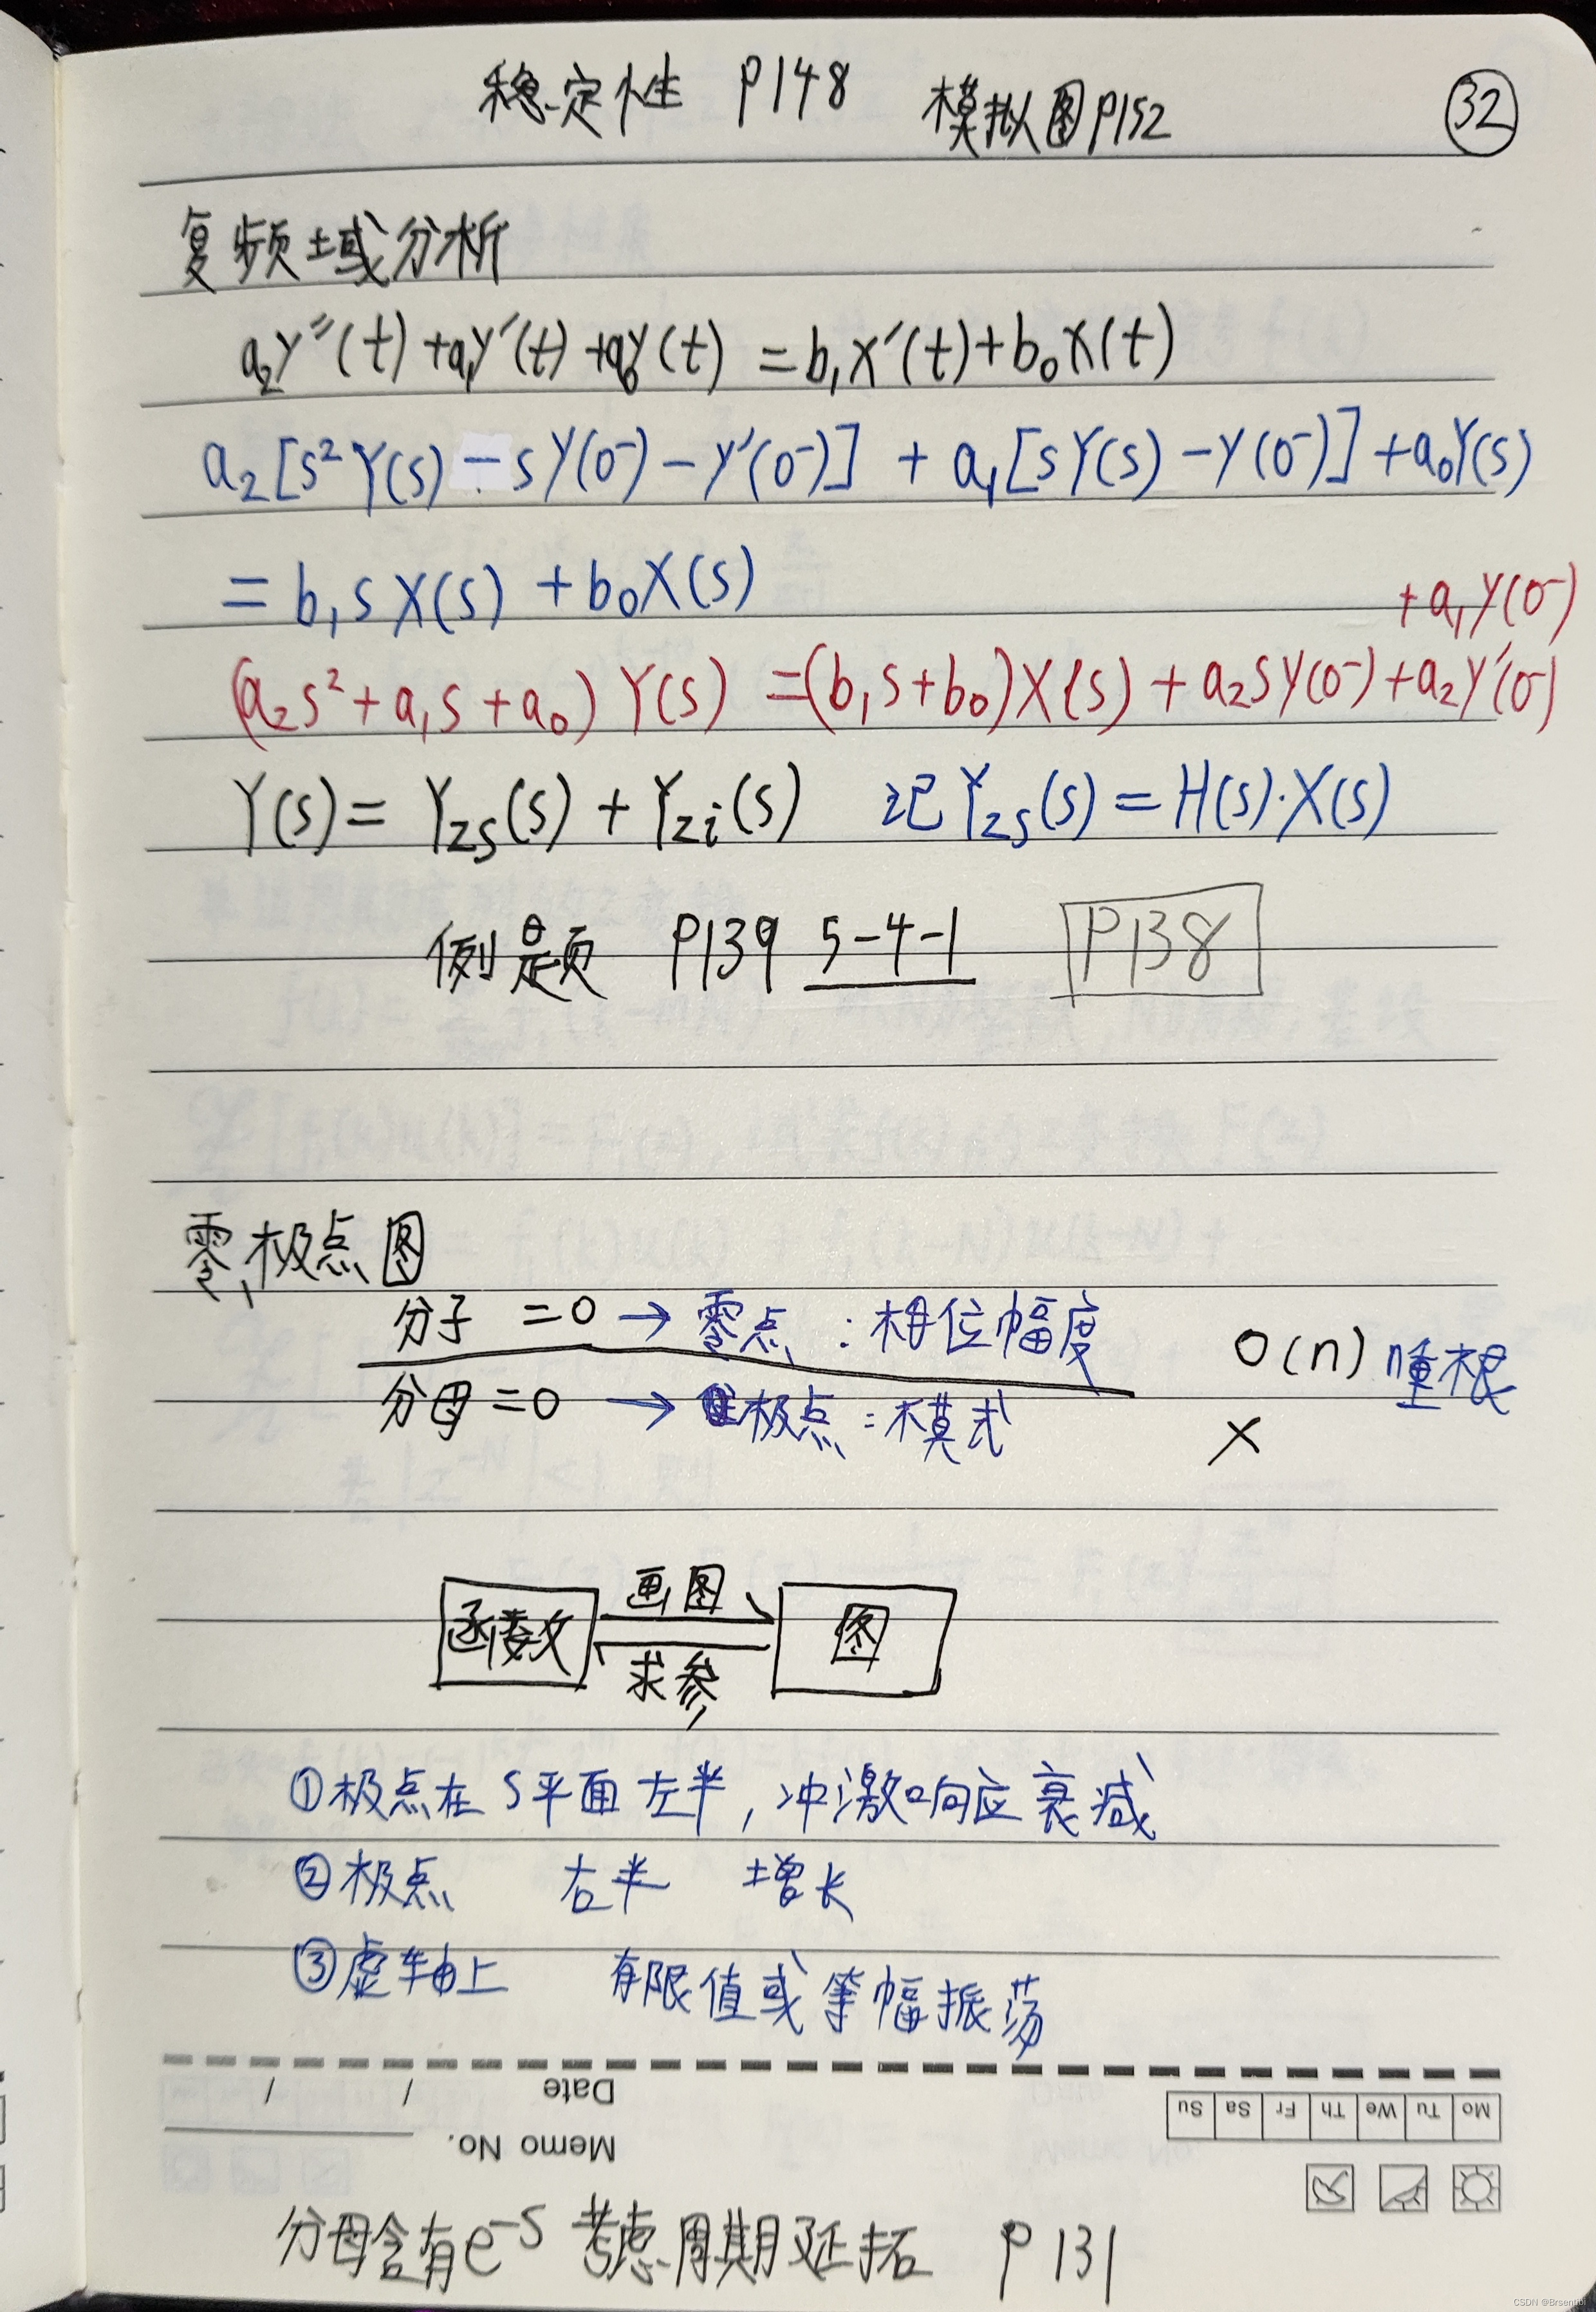 稳定性 P148 模拟图P152 32
复频域分析
a₂y″(t)+a₁y′(t)+a₀y(t)=b₁x′(t)+b₀x(t)
a₂[s²Y(s)-sy(0⁻)-y′(0⁻)]+a₁[sY(s)-y(0⁻)]+a₀Y(s)
=b₁sX(s)+b₀X(s)
+a₁y(0⁻)
(a₂s²+a₁s+a₀)Y(s)=(b₁s+b₀)X(s)+a₂sy(0⁻)+a₂y′(0⁻)
Y(s)=Yzs(s)+Yzi(s) 记Yzs(s)=H(s)·X(s)
例题 P139 5-4-1 P138
零、极点图
分子=0→零点:相位幅度 O(n) n重根
分母=0→极点:模式 ×
画图
函数 图
求参
①极点在S平面左半,冲激响应衰减
②极点 右半 增长
③虚轴上 有限值或等幅振荡
Date / /
Memo No.
Mo Tu We Th Fr Sa Su
分母含有e⁻ˢ考虑周期延拓 P131
CSDN @Brsentibi